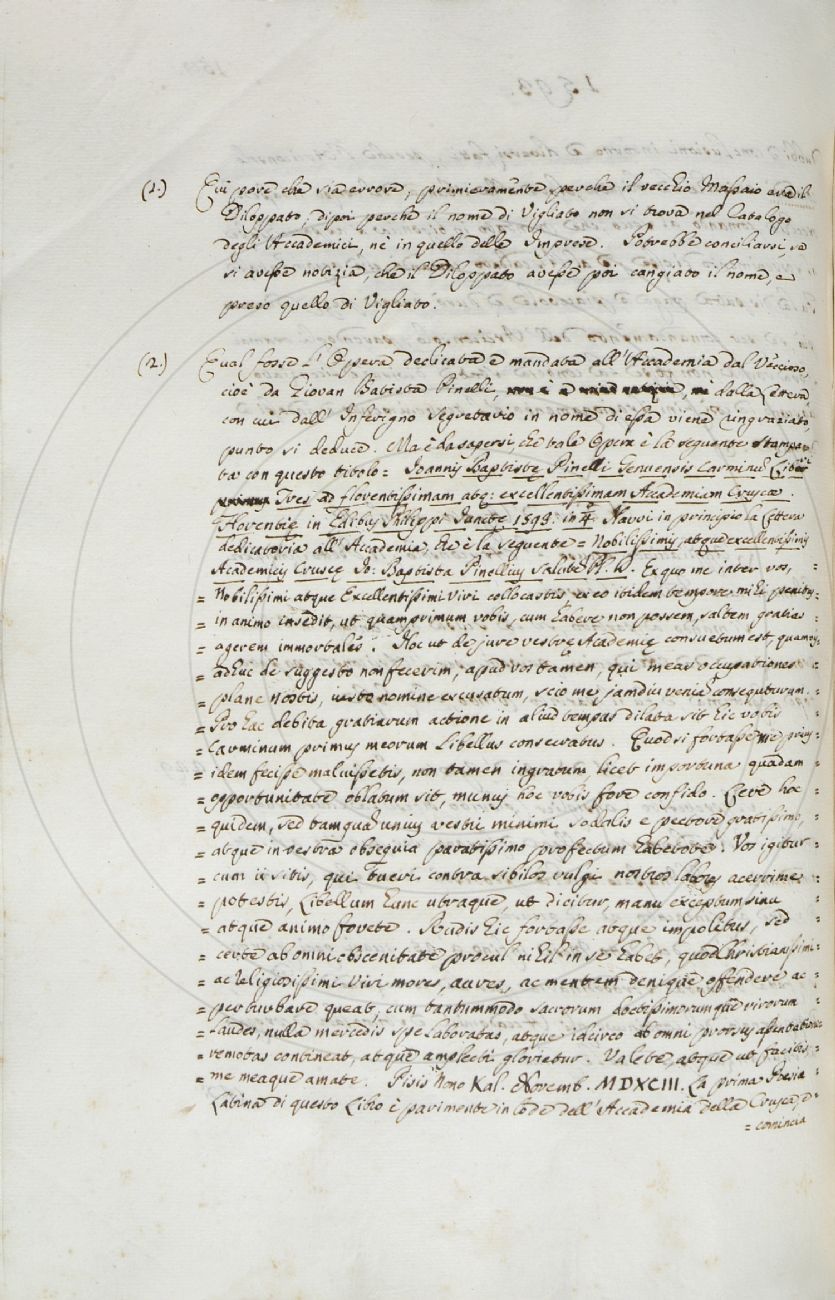 (1.) Qui pare che sia errore, primieramente perchè il vecchio Massaio era il
Diloppato, dipoi perchè il nome di Vigliato non si trova nel Catalogo
degli Accademici, nè in quello delle Imprese. Potrebbe conciliarsi, se
si avesse notizia, che il Diloppato avesse poi cangiato il nome, e
preso quello di Vigliato.
(2.) Qual fosse l'Opera dedicata e mandata all'Accademia dal
cioè da Giovan Batista Pinelli, dalla Lettera
con cui dall'Inferigno Segretario in nome di essa viene ringraziato,
punto si deduce. Ma è da sapersi, che tale Opera è la seguente stampa-
ta con questo titolo = Joannis Baptistę Pinelli Genuensis Carminū Libri
Tres ad florentissimam atq; excellentissimam Academiam Cruscę.
Florentię in Ędibus Philippi Junctę 1593. in 4. Havvi in principio la Lettera
dedicatoria all'Accademia, che è la seguente = Nobilissimis, atque excellentissimis
Academicis Cruscę Jo: Baptista Pinellius Salutē Ex quo me inter vos,
= Nobilissimi atque Excellentissimi Viri collocastis, ex eo itidem tempore mihi penitus
= in animo insedit, ut quamprimum vobis, cum habere non possem, saltem gratias
= agerem immortales. Hoc ut de jure vestrę Academię consuetum est, quamvis
= adhuc de suggesto non fecerim, apud vos tamen, qui meas occupationes
= plane nostis, justo nomine excusatum, scio me jamdiu veniā consequturum.
= Pro hac debita gratiarum actione in aliud tempus dilata sit hic vobis
= Carminum primus meorum Libellus consecratus. Quod si fortasse me prius
= idem fecisse maluissetis, non tamen ingratum licet importuna quadam
= opportunitate oblatum sit, munus hoc vobis fore confido. Leve hoc
= quidem, sed tamquā unius vestri minimi sodalis e pectore gratissimo,
= atque in vestra obsequia paratissimo profectum habetote. Vos igitur
= cum ii sitis, qui tueri contra sibilos vulgi nostros labores acerrime
= potestis, Libellum hunc utraque, ut dicitur, manu exceptum sinu
= atque animo fovete. Rudis hic fortasse atque impolitus, sed
= certe ab omni obscenitate procul nihil in se habet, quod Christianissimi
= ac religiosissimi Viri mores, aures, ac mentem denique offendere ac
= perturbare queat, cum tantummodo sacrorum doctissimorumque virorum
= laudes, nulla mercedis spe laboratas, atque idcirco ab omni prorsus assentatione
= remotas contineat, atque amplecti glorietur. Valete, atque ut facitis,
= me meaque amate. Pisis Nono Kal. Novemb. MDXCIII. La prima Poesia
Latina di questo Libro è parimente in lode dell'Accademia della Crusca, e
= comincia